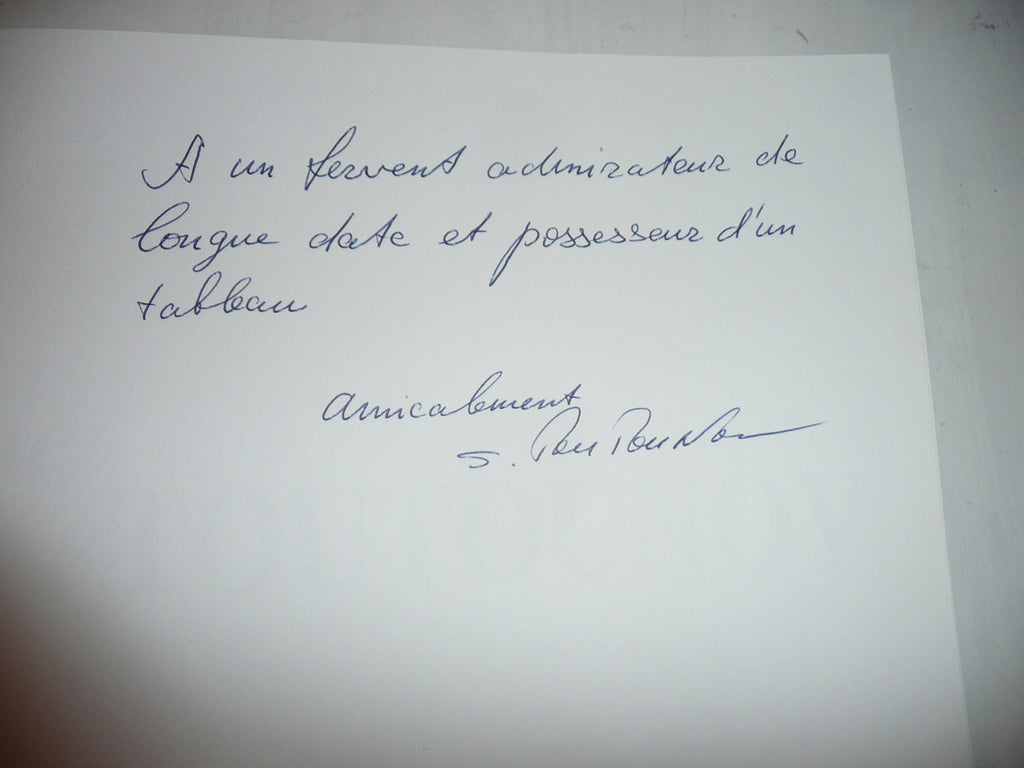 A un fervent admirateur de
longue date et possesseur d'un
tableau
amicalement
S. Toutounov